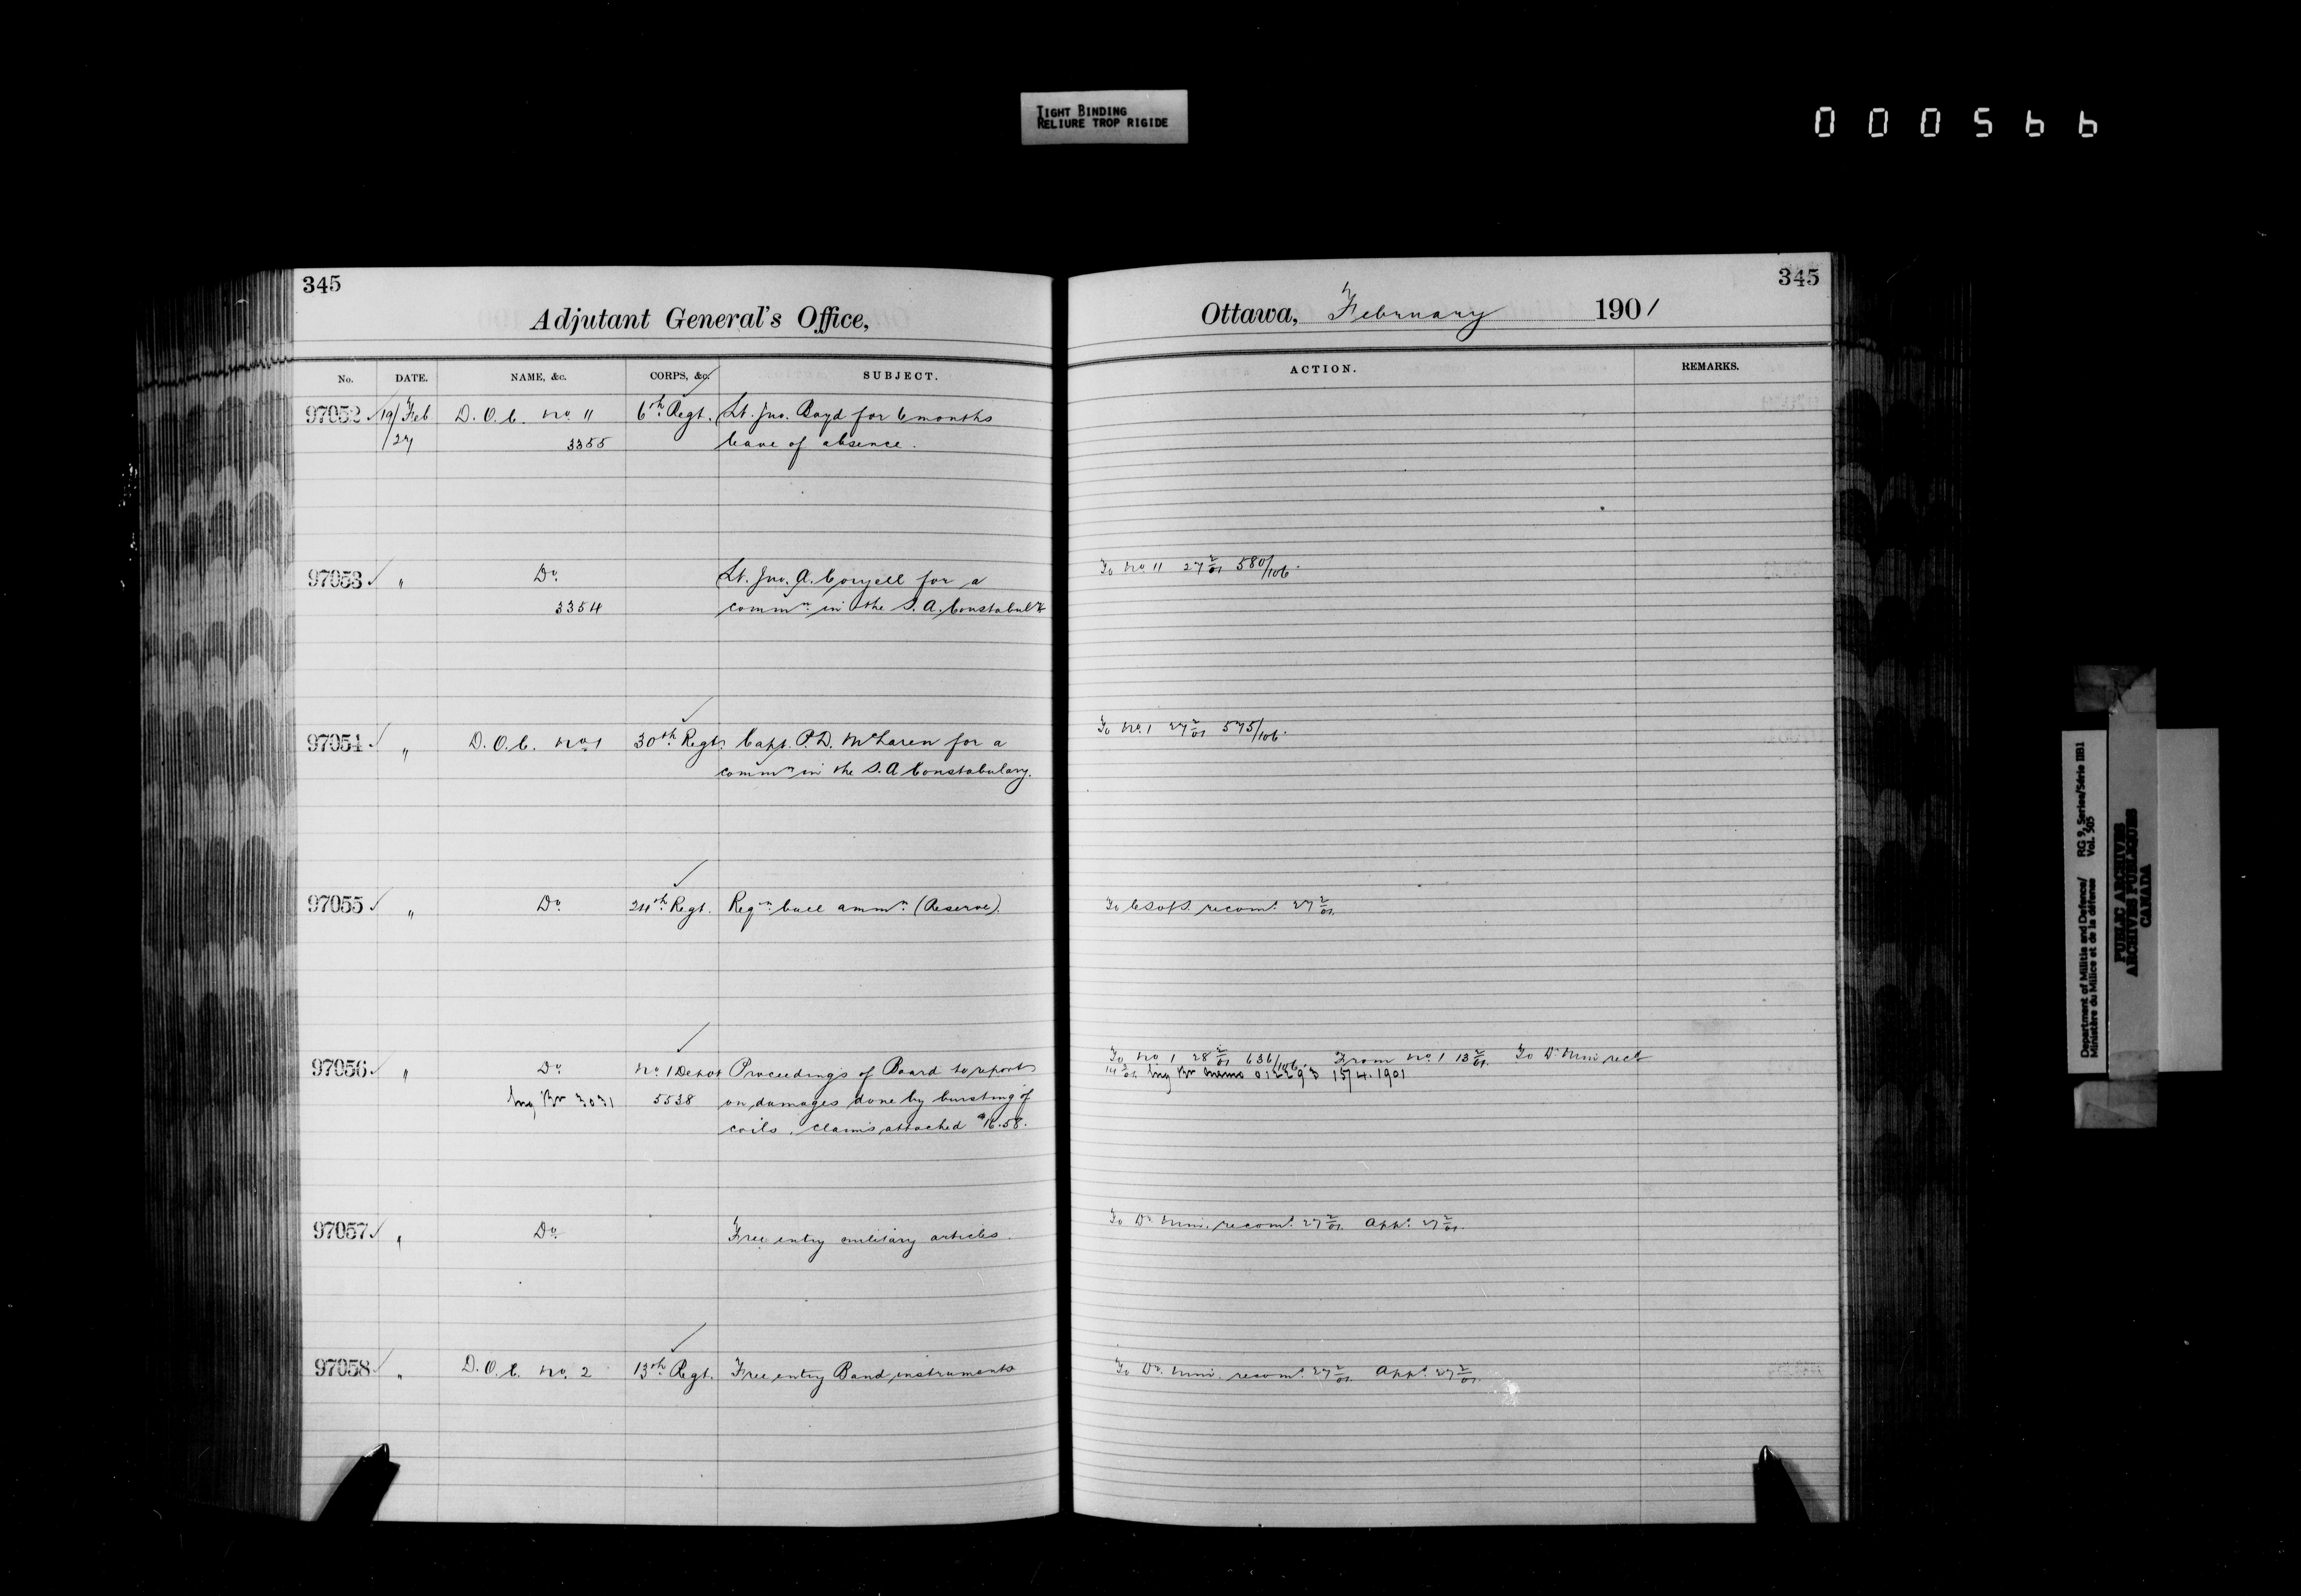 TIGHT BINDING
RELIURE TROP RIGIDE
000566
345
Adjutant General's Office,
No. DATE. NAME, &c. CORPS, &c. SUBJECT.
97052 19/Feb D.O.C. No. 11 6th Regt. Lt. Jno. Boyd for 6 months
/27 3355 leave of absence.
97053 " Do. Lt. Jno. A. Coryell for a
3354 commn. in the S.A. Constabuly
97054 " D.O.C. No. 1 30th Regt. Capt. P.D. McLaren for a
commn in the S.A Constabulary.
97055 " Do. 24th Regt. Reqn. ball ammn. (Reserve).
97056 " Do. No. 1 Depot Proceedings of Board to report
Eng Br 3031 5538 on damages done by bursting of
coils. Claims attached $16.58.
97057 " Do. Free entry military articles.
97058 " D.O.C. No. 2 13th Regt. Free entry Band instruments
345
Ottawa, February 1901
ACTION. REMARKS.
To No. 11 27 2/01 580/106.
To No. 1 27 2/01 575/106.
To CSofS. recomd. 27 2/01.
To No 1 28 2/01 636/106. From No. 1 13 3/01. To Dr. Min.
14 3/01. Eng Br memo 01229 15/4.1901
To Dr. Min. recomd. 27 2/01. Appd. 27 2/01.
To Dr. Min. recomd. 27 2/01. Appd. 27 2/01.
Department of Militia and Defence/ RG 9, Series/Série IIB1
Ministère du Milice et de la défense Vol. 505
PUBLIC ARCHIVES
ARCHIVES PUBLIQUES
CANADA